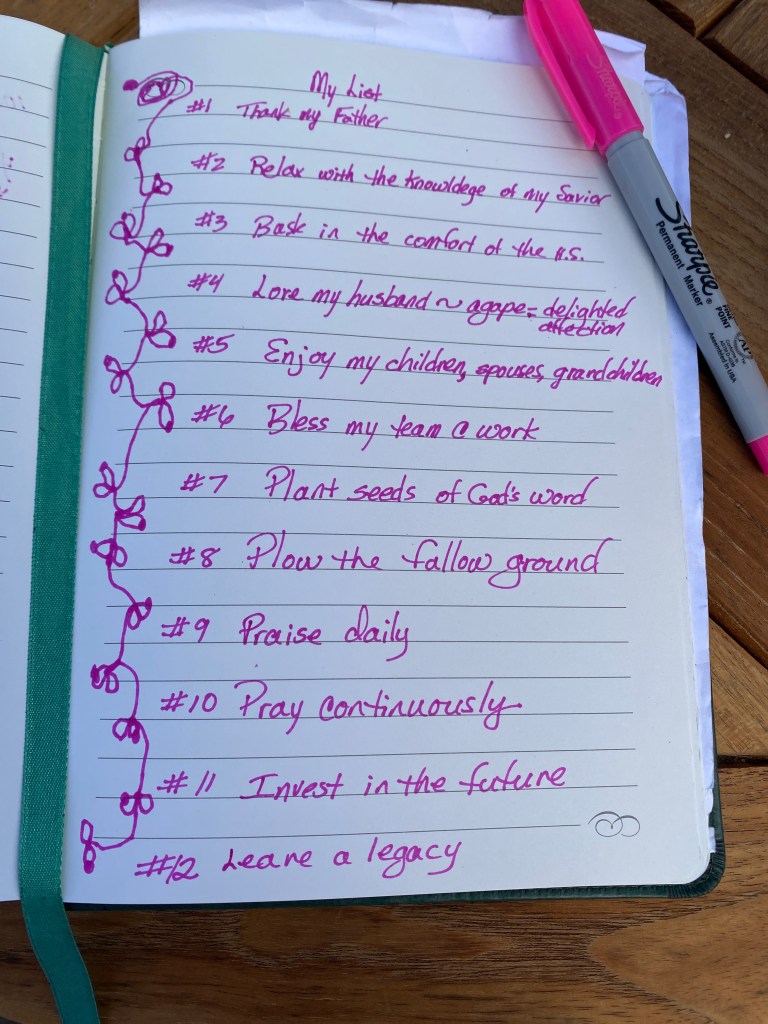 My List
#1 Thank my Father
#2 Relax with the knowldege of my Savior
#3 Bask in the comfort of the H.S.
#4 Love my husband ~ agape = delighted
affection
#5 Enjoy my children, spouses, grandchildren
#6 Bless my team @ work
#7 Plant seeds of God's word
#8 Plow the fallow ground
#9 Praise daily
#10 Pray continuously
#11 Invest in the future
#12 Leave a legacy
Sharpie
Sharpie®
Permanent Marker
FINE
POINT